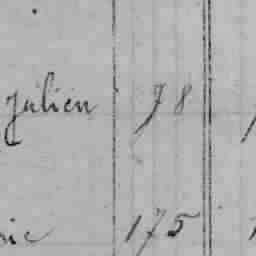 Julien 78
175